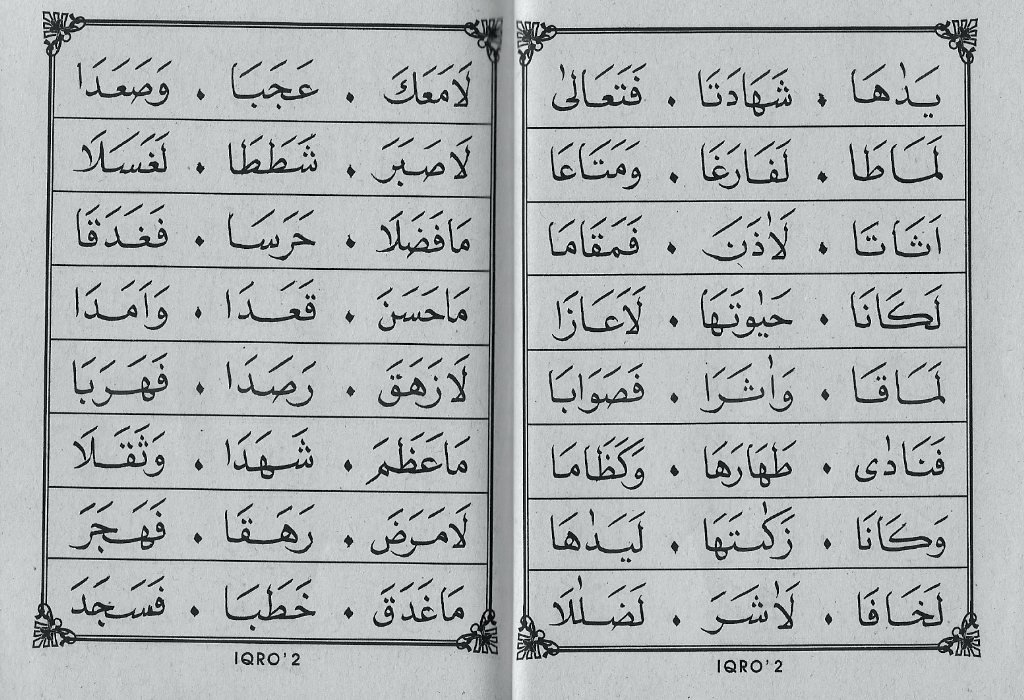 يَدٰهَا . شَهَادَتَا . فَتَعَالىٰ
لَمَاطَا . لَفَارَغَا . وَمَتَاعَا
اَثَاتَا . لَاٰذَنَ . فَمَقَامَا
لَكَانَا . حَيٰوتَهَا . لَاَعَازَا
لَمَاقَا . وَاٰثَرَا . فَصَوَابَا
فَنَادٰى . طَهَارَهَا . وَكَظَامَا
وَكَانَا . زَكٰتَهَا . لَيَدٰهَا
لَخَافَا . لَاٰشَرَ . لَضَلٰلَا
IQRO' 2
لَامَعَكَ . عَجَبَا . وَصَعَدَا
لَاصَبَرَ . شَطَطَا . لَغَسَلَا
مَافَضَلَا . حَرَسَا . فَغَدَقَا
مَاحَسَنَ . قَعَدَا . وَاَمَدَا
لَازَهَقَ . رَصَدَا . فَهَرَبَا
مَاعَظَمَ . شَهَدَا . وَثَقَلَا
لَامَرَضَ . رَهَقَا . فَهَجَرَ
مَاغَدَقَ . خَطَبَا . فَسَجَدَ
IQRO' 2